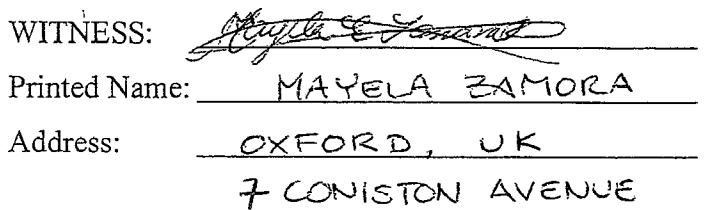 WITNESS:
Printed Name: MAYELA ZAMORA
Address: OXFORD, UK
7 CONISTON AVENUE